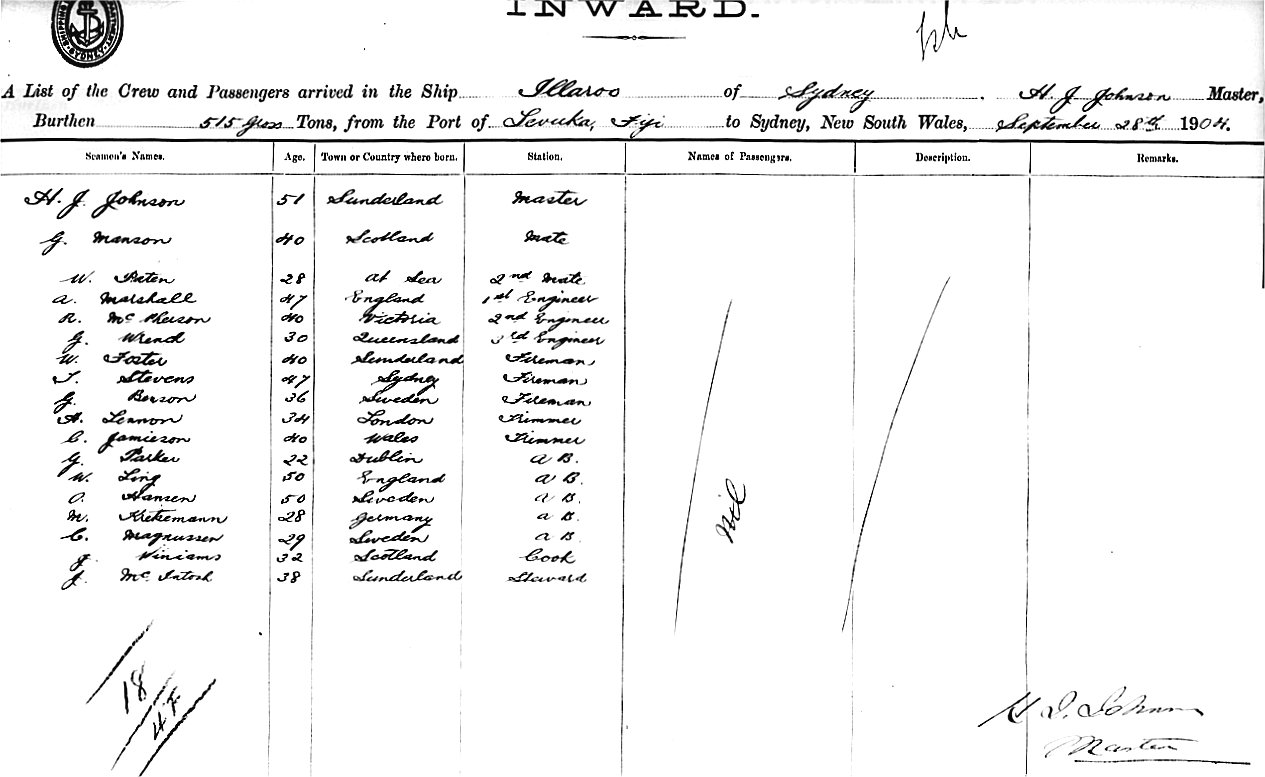 INWARD.
SYDNEY
A List of the Crew and Passengers arrived in the Ship Illaroo of Sydney. H. J. Johnson Master,
Burthen 515 Gross Tons, from the Port of Levuka, Fiji to Sydney, New South Wales, September 28th 1904.
Seamen's Names. Age. Town or Country where born. Station. Names of Passengers. Description. Remarks.
H. J. Johnson 51 Sunderland Master
G. Manson 40 Scotland Mate
W. Paten 28 at Sea 2nd Mate
A. Marshall 47 England 1st Engineer
R. McPherson 40 Victoria 2nd Engineer
G. Wrend 30 Queensland 3rd Engineer
W. Foster 40 Sunderland Fireman
T. Stevens 47 Sydney Fireman
G. Benson 36 Sweden Fireman
H. Lennon 34 London Trimmer
C. Jamieson 40 Wales Trimmer
G. Parker 22 Dublin A B.
W. Ling 50 England A B.
O. Hansen 50 Sweden A B.
M. Kretzmann 28 Germany A B.
C. Magnussen 29 Sweden A B.
J. Winiams 32 Scotland Cook
J. McIntosh 38 Sunderland Steward
Nil
18
H. J. Johnson
Master